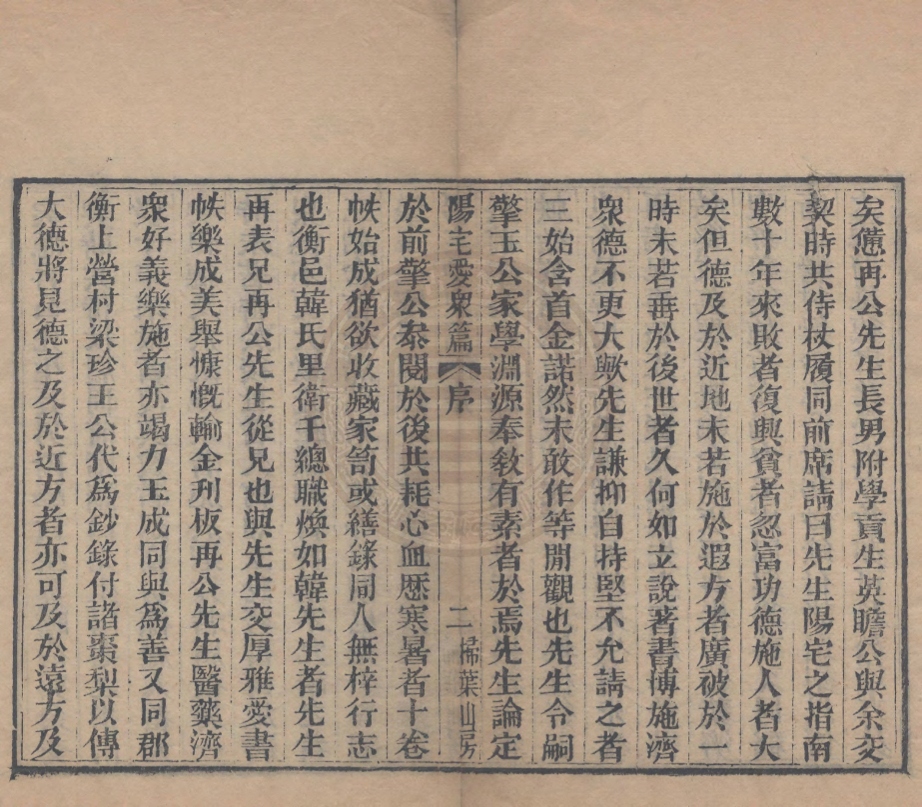 矣憊再公先生長男附學貢生英瞻公與余交
契時共侍杖履同前席請曰先生陽宅之指南
數十年來敗者復興貧者忽富功德施人者大
矣但德及於近地未若施於遐方者廣被於一
時未若垂於後世者久何如立說著書博施濟
眾德不更大歟先生謙抑自持堅不允請之者
三始含首金諾然未敢作等閒觀也先生令嗣
擎玉公家學淵源奉教有素者於焉先生論定
陽宅愛眾篇 序 二 掃葉山房
於前擎公叅閱於後共耗心血歴寒暑者十卷
帙始成猶欲收藏家笥或繕錄同人無梓行志
也衡邑韓氏里衛千總職煥如韓先生者先生
再表兄再公先生從兄也與先生交厚雅愛書
帙樂成美舉慷慨輸金刋板再公先生醫藥濟
眾好義樂施者亦竭力玉成同與為善又同郡
衡上營村梁珍王公代為鈔錄付諸棗梨以傳
大德將見德之及於近方者亦可及於遠方及